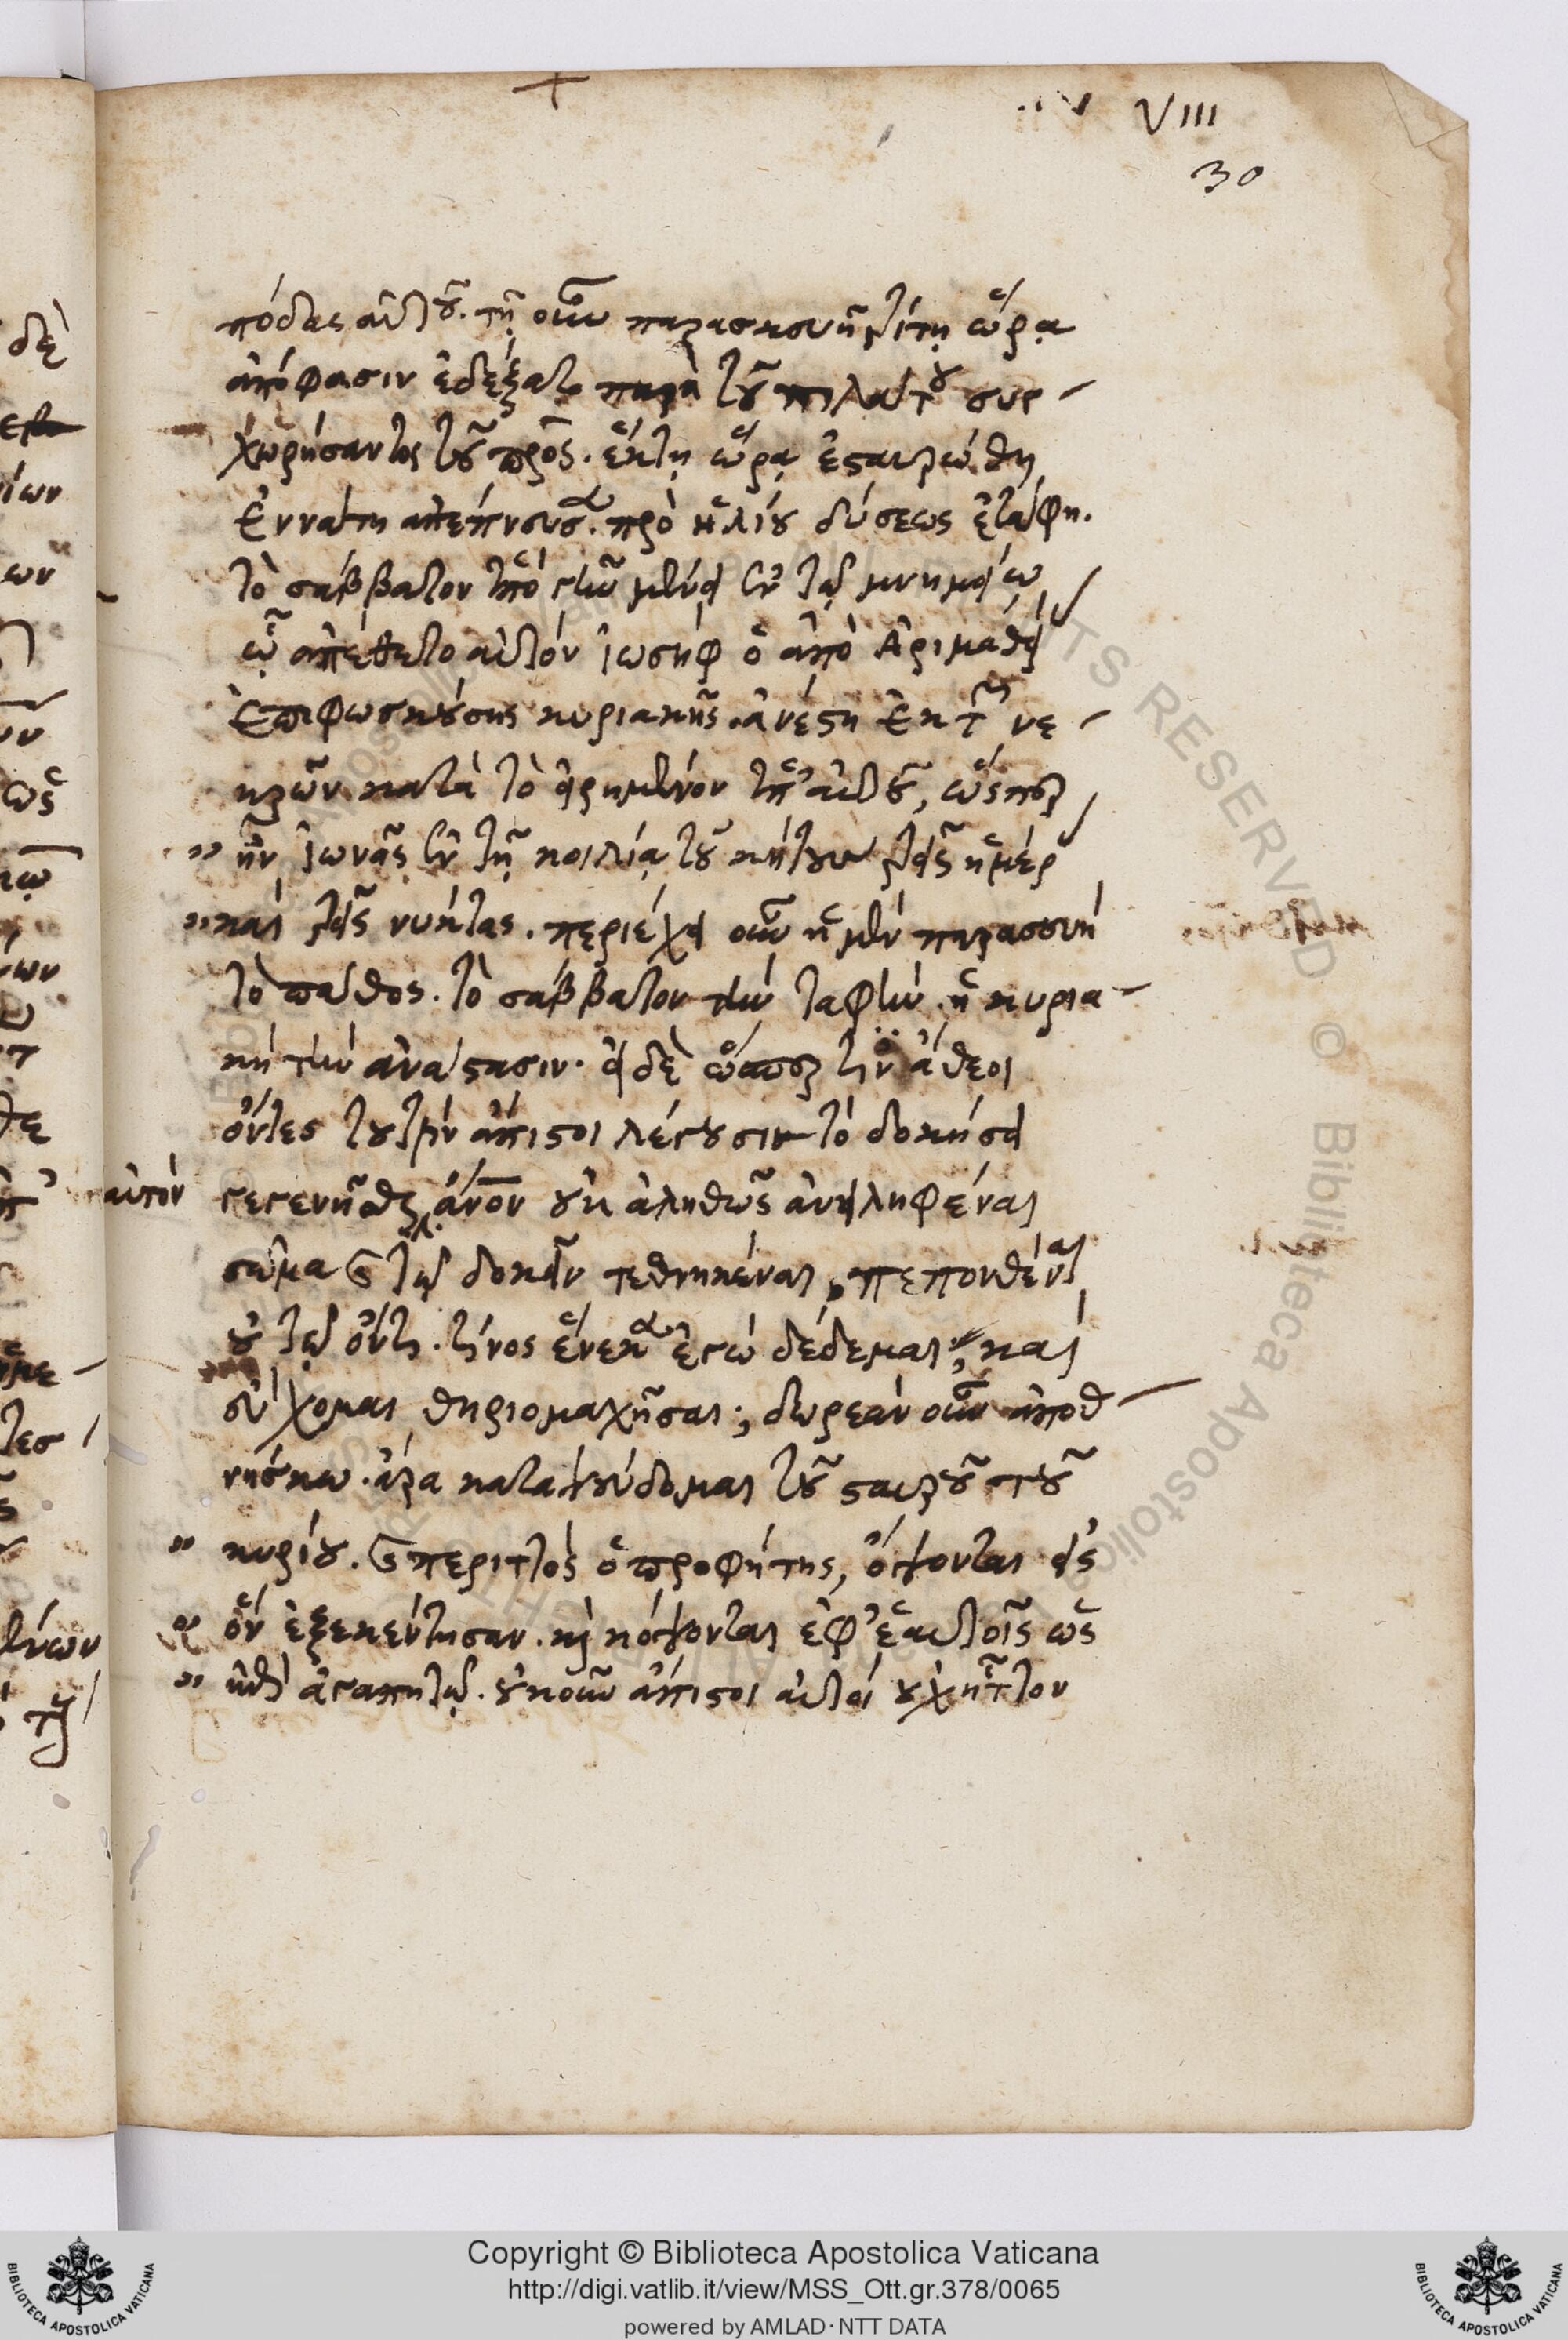 VIII
30
πόδας αὐτοῦ. τῇ οὖν παρασκευῇ τρίτῃ ὥρᾳ
ἀπόφασιν ἐδέξατο παρὰ τοῦ πιλάτου συγ-
χωρήσαντος τοῦ πρσ. ἕκτῃ ὥρᾳ ἐσταυρώθη
ἐννάτῃ ἀπέπνευσα. πρὸ ἡλίου δύσεως ἐτάφη.
τὸ σάββατον ὑπὸ γῆν μένει ἐν τῷ μνημείῳ
ᾧ ἀπέθετο αὐτόν ἰωσὴφ ὁ ἀπὸ Ἀριμαθεί
ἐπιφωσκούσης κυριακῆς. ἀνέστη ἐκ τῶν νε-
κρῶν. κατὰ τὸ εἰρημένον ὑπ' αὐτοῦ, ὥσπερ
" ἦν ἰωνᾶς ἐν τῇ κοιλίᾳ τοῦ κήτους τρεῖς ἡμέρ
" καὶ τρεῖς νύκτας. περιέχει οὖν ἡ μὲν παρασευή
τὸ πάθος. τὸ σάββατον τὴν ταφήν. ἡ κυρια-
κή τὴν ἀνάστασιν. εἰ δὲ ὥσπερ τινὲς ἄθεοι
ὄντες τουτέστιν ἄπιστοι λέγουσιν τὸ δοκήσει
αὐτὸν γεγενῆσθαι ἄνον οὐκ ἀληθῶς ἀνειληφέναι
σῶμα καὶ τῷ δοκεῖν τεθνηκέναι, πεπονθέναι
οὐ τῷ ὄντι. τίνος ἕνεκα ἐγὼ δέδεμαι, καὶ
εὔχομαι θηριομαχῆσαι; δωρεὰν οὖν ἀποθ-
νήσκω. ἄρα καταψεύδομαι τοῦ σταυροῦ τοῦ
" κυρίου. καὶ περιττὸς ὁ προφήτης, ὄψονται εἰς
" ὃν ἐξεκέντησαν. καὶ κόψονται ἐφ' ἑαυτοῖς ὡς
" ἐπὶ ἀγαπητῷ. οὐκοῦν ἄπιστοι αὐτοί οὐχ ἧττον
Copyright © Biblioteca Apostolica Vaticana
http://digi.vatlib.it/view/MSS_Ott.gr.378/0065
powered by AMLAD·NTT DATA